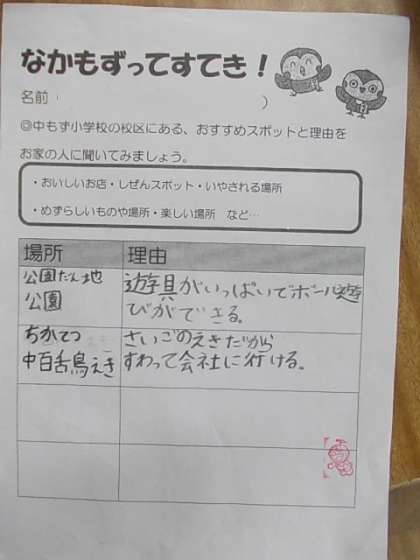 なかもずってすてき！
名前（　　　）
◎中もず小学校の校区にある、おすすめスポットと理由を
お家の人に聞いてみましょう。
・おいしいお店・しぜんスポット・いやされる場所
・めずらしいものや場所・楽しい場所　など…
場所　理由
公園だん地
公園
遊具がいっぱいでボール遊
びができる。
ちかてつ
中百舌鳥えき
さいごのえきだから
すわって会社に行ける。